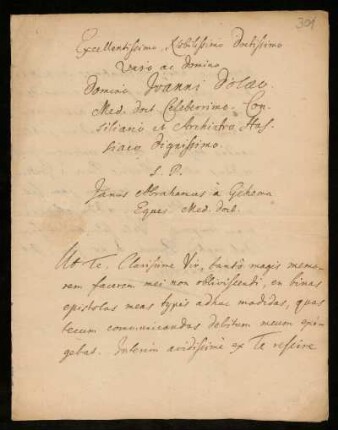 301
Excellentissimo, Nobilissimo Doctissimo
Viro ac Domino
Domino Joanni Dolaeo
Med. Doct. Celeberrimo. Con-
siliario et Archiatro Has-
siaco dignissimo.
S. P.
Janus Abrahamus à Gehema
Eques. Med. Doct.
Ut Te, Clarissime Vir, tantò magis memo-
rem facerem mei non obliviscendi, en binas
epistolas meas typis adhuc madidas, quas
tecum communicandas debitum meum exi-
gebat. Interim avidissimè ex Te rescire